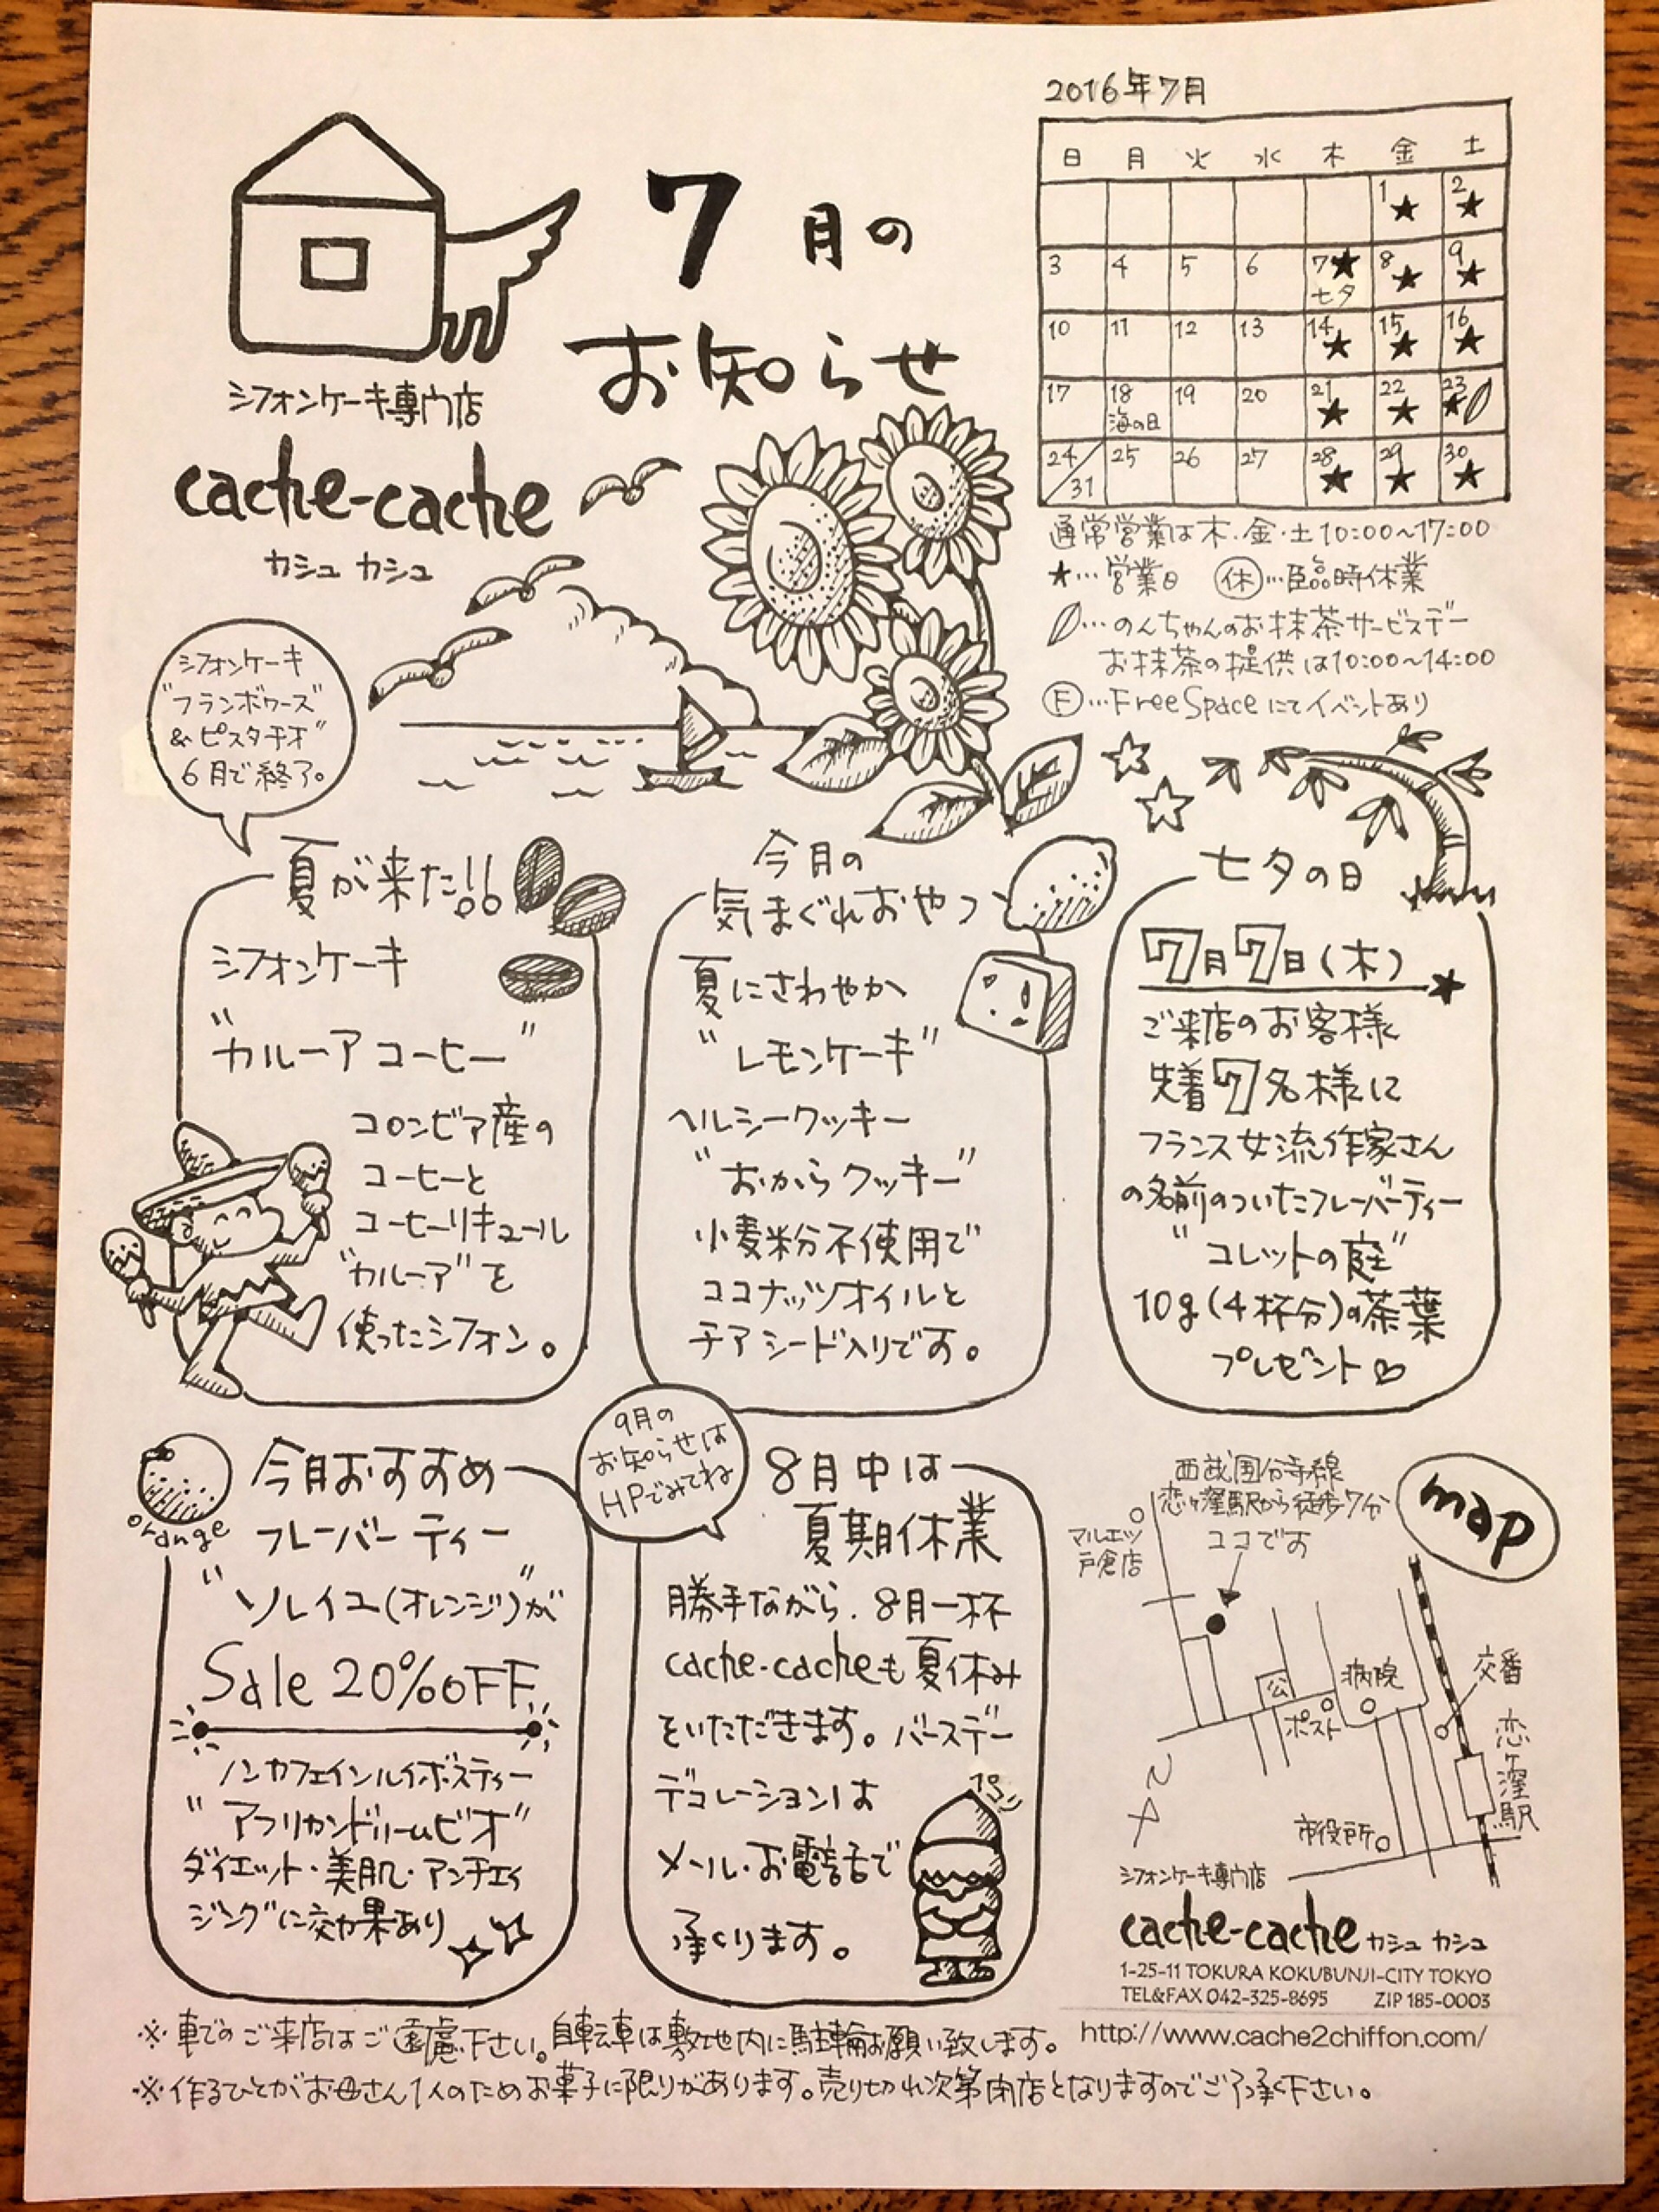 7月の
お知らせ
シフォンケーキ専門店
cache-cache
カシュ カシュ
2016年7月
日 月 火 水 木 金 土
1★ 2★
3 4 5 6 7★ 8★ 9★
七夕
10 11 12 13 14★ 15★ 16★
17 18 19 20 21★ 22★ 23★
海の日
24/31 25 26 27 28★ 29★ 30★
通常営業は木・金・土10:00〜17:00
★…営業日 休…臨時休業
…のんちゃんのお抹茶サービスデー
お抹茶の提供は10:00〜14:00
F…Free Spaceにてイベントあり
シフォンケーキ
"フランボワーズ
&ピスタチオ"
6月で終了。
夏が来た!!
シフォンケーキ
"カルーア コーヒー"
コロンビア産の
コーヒーと
コーヒーリキュール
"カルーア"を
使ったシフォン。
今月の
気まぐれおやつ
夏にさわやか
"レモンケーキ"
ヘルシークッキー
"おからクッキー"
小麦粉不使用で
ココナッツオイルと
チアシード入りです。
七夕の日
7月7日(木)
ご来店のお客様
先着7名様に
フランス女流作家さん
の名前のついたフレーバーティー
"コレットの庭"
10g(4杯分)の茶葉
プレゼント♡
orange
今月おすすめ
フレーバーティー
"ソレイユ(オレンジ)"が
Sale 20%OFF
ノンカフェインルイボスティー
"アフリカンドリームビオ"
ダイエット・美肌・アンチエイ
ジングに効果あり
9月の
お知らせは
HPでみてね
8月中は
夏期休業
勝手ながら、8月一杯
cache-cacheも夏休み
をいただきます。バースデー
デコレーションは
メール・お電話で
承ります。
ペコリ
map
西武国分寺線
恋ヶ窪駅から徒歩7分
ココです
マルエツ
戸倉店
公
病院
ポスト
交番
恋ヶ窪駅
市役所
シフォンケーキ専門店
cache-cache カシュ カシュ
1-25-11 TOKURA KOKUBUNJI-CITY TOKYO
TEL&FAX 042-325-8695 ZIP 185-0003
http://www.cache2chiffon.com/
※車でのご来店はご遠慮下さい。自転車は敷地内に駐輪お願い致します。
※作るひとがお母さん1人のためお菓子に限りがあります。売り切れ次第閉店となりますのでご了承下さい。